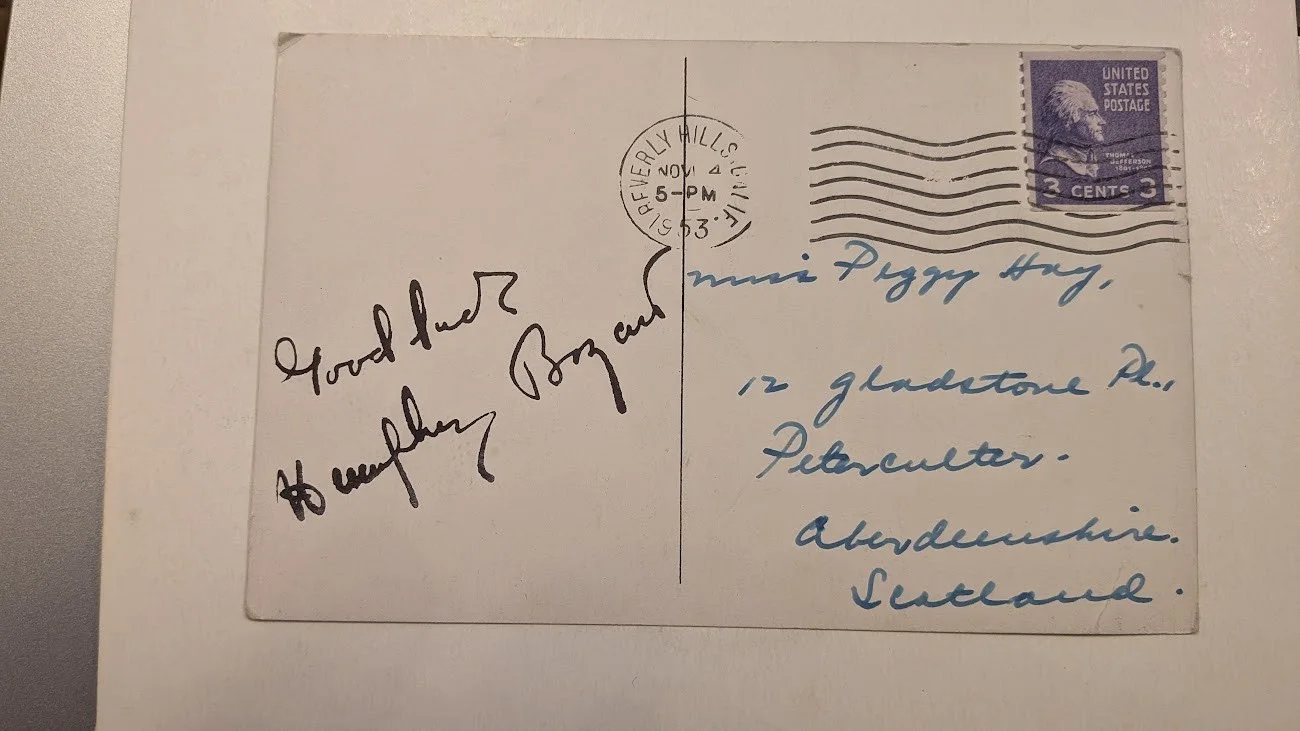 Good luck
Humphrey Bogart
BEVERLY HILLS, CALIF.
NOV 4
5-PM
1953
UNITED
STATES
POSTAGE
THOMAS
JEFFERSON
3 CENTS 3
Miss Peggy Hay,
12 Gladstone Pl.,
Peterculter.
Aberdeenshire.
Scotland.